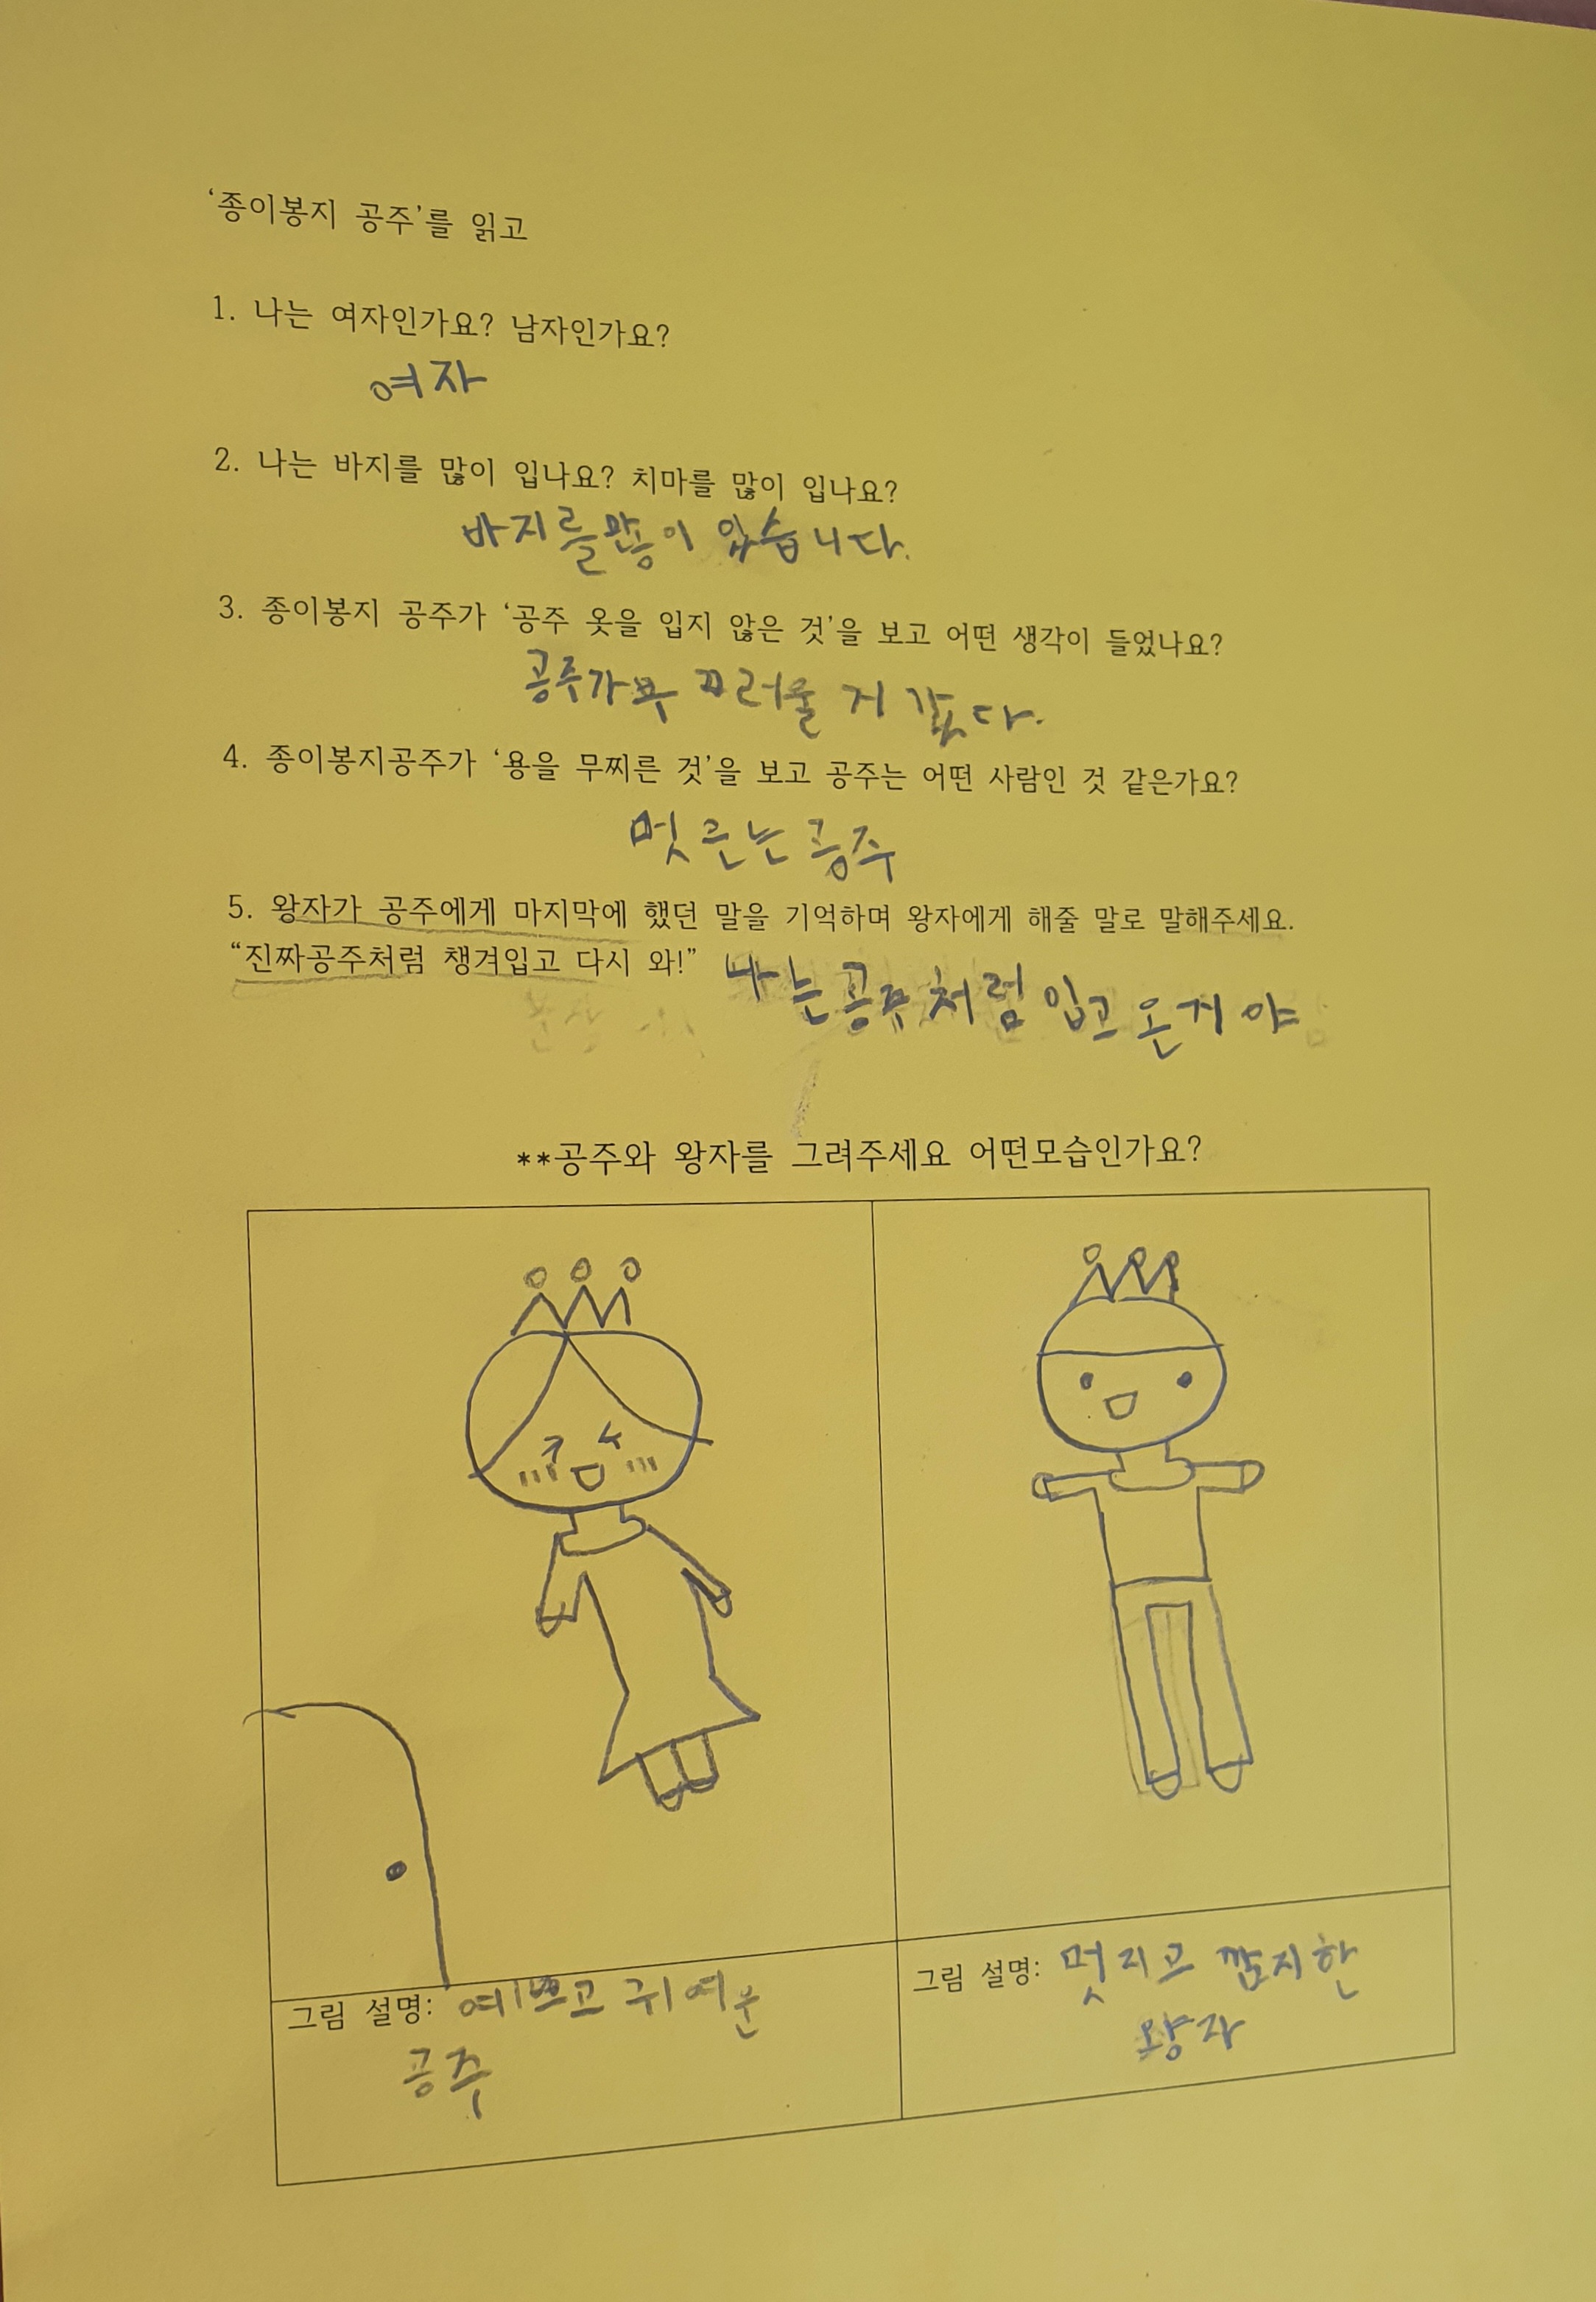 ‘종이봉지 공주’를 읽고
1. 나는 여자인가요? 남자인가요?
여자
2. 나는 바지를 많이 입나요? 치마를 많이 입나요?
바지를 만이 입습니다.
3. 종이봉지 공주가 ‘공주 옷을 입지 않은 것’을 보고 어떤 생각이 들었나요?
공주가 부끄러울 거 같다.
4. 종이봉지공주가 ‘용을 무찌른 것’을 보고 공주는 어떤 사람인 것 같은가요?
공주
5. 왕자가 공주에게 마지막에 했던 말을 기억하며 왕자에게 해줄 말로 말해주세요.
“진짜공주처럼 챙겨입고 다시 와!” 나는 공주처럼 입고 온거야
**공주와 왕자를 그려주세요 어떤모습인가요?
그림 설명: 예쁘고 귀여운
공주
그림 설명: 멋지고 깜지한
왕자